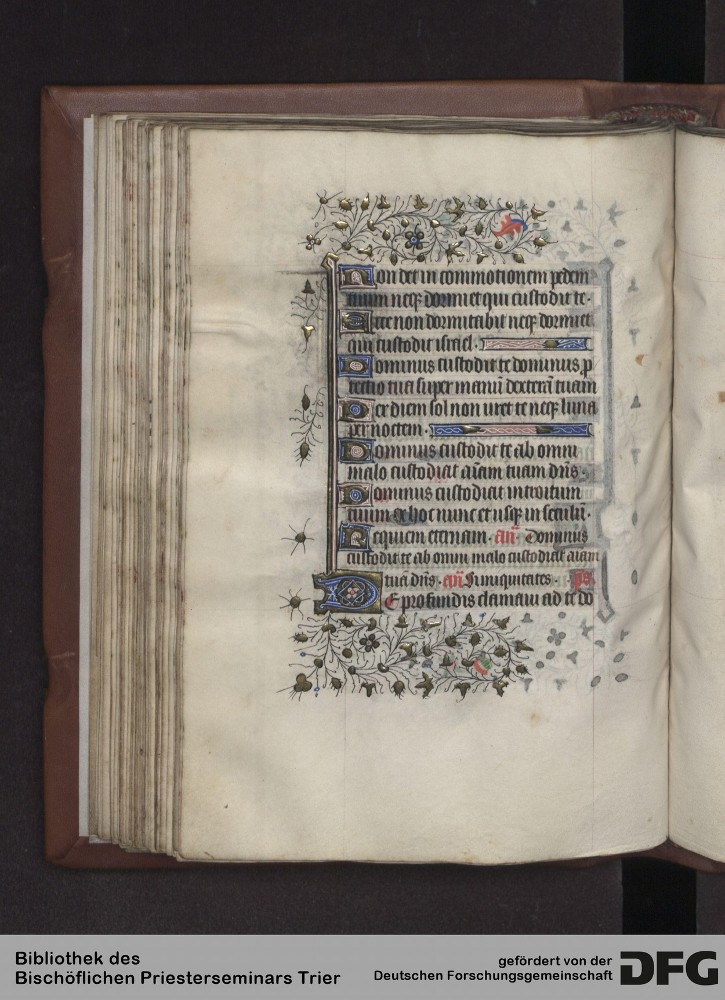 Non det in commotionem pedem
tuum neq̄ dormiet qui custodit te·
Ecce non dormitabit neq̄ dormiet
qui custodit israel·
Dominus custodit te dominus p̱
tectio tua super manū dexterā tuam
Per diem sol non uret te neq̄ luna
per noctem·
Dominus custodit te ab omni
malo custodiat aīam tuam dn̄s·
Dominus custodiat introitum
tuum et hoc nunc et usq̄ in seculū·
Requiem eternam· añ· Dominus
custodit te ab omni malo custodiat aīam
tuā dn̄s· añ Si iniquitates· ps
De profundis clamaui ad te do
Bibliothek des
Bischöflichen Priesterseminars Trier
gefördert von der
Deutschen Forschungsgemeinschaft
DFG